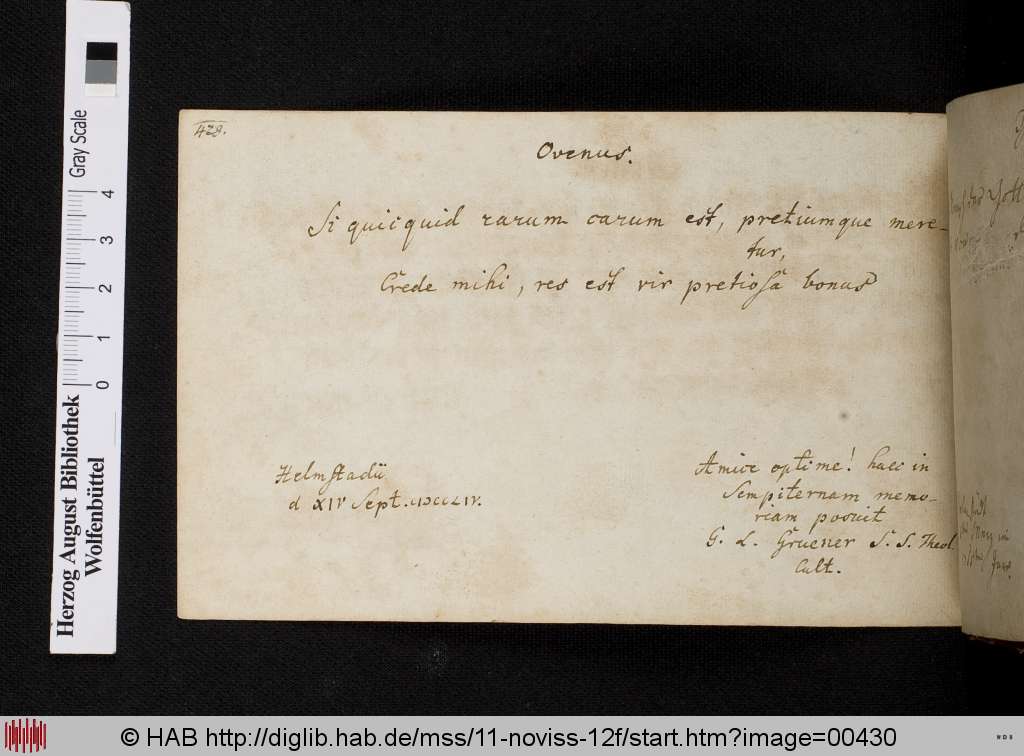 428.
Ovenus.
Si quicquid rarum carum est, pretiumque mere-
tur,
Crede mihi, res est vir pretiosa bonus
Helmstadii
d XIV Sept. MDCCLIV.
Amice optime! haec in
sempiternam memo-
riam posuit
G. L. Gruener S. S. Theol.
Cult.
Herzog August Bibliothek
Wolfenbüttel
Gray Scale
0 1 2 3 4
© HAB http://diglib.hab.de/mss/11-noviss-12f/start.htm?image=00430